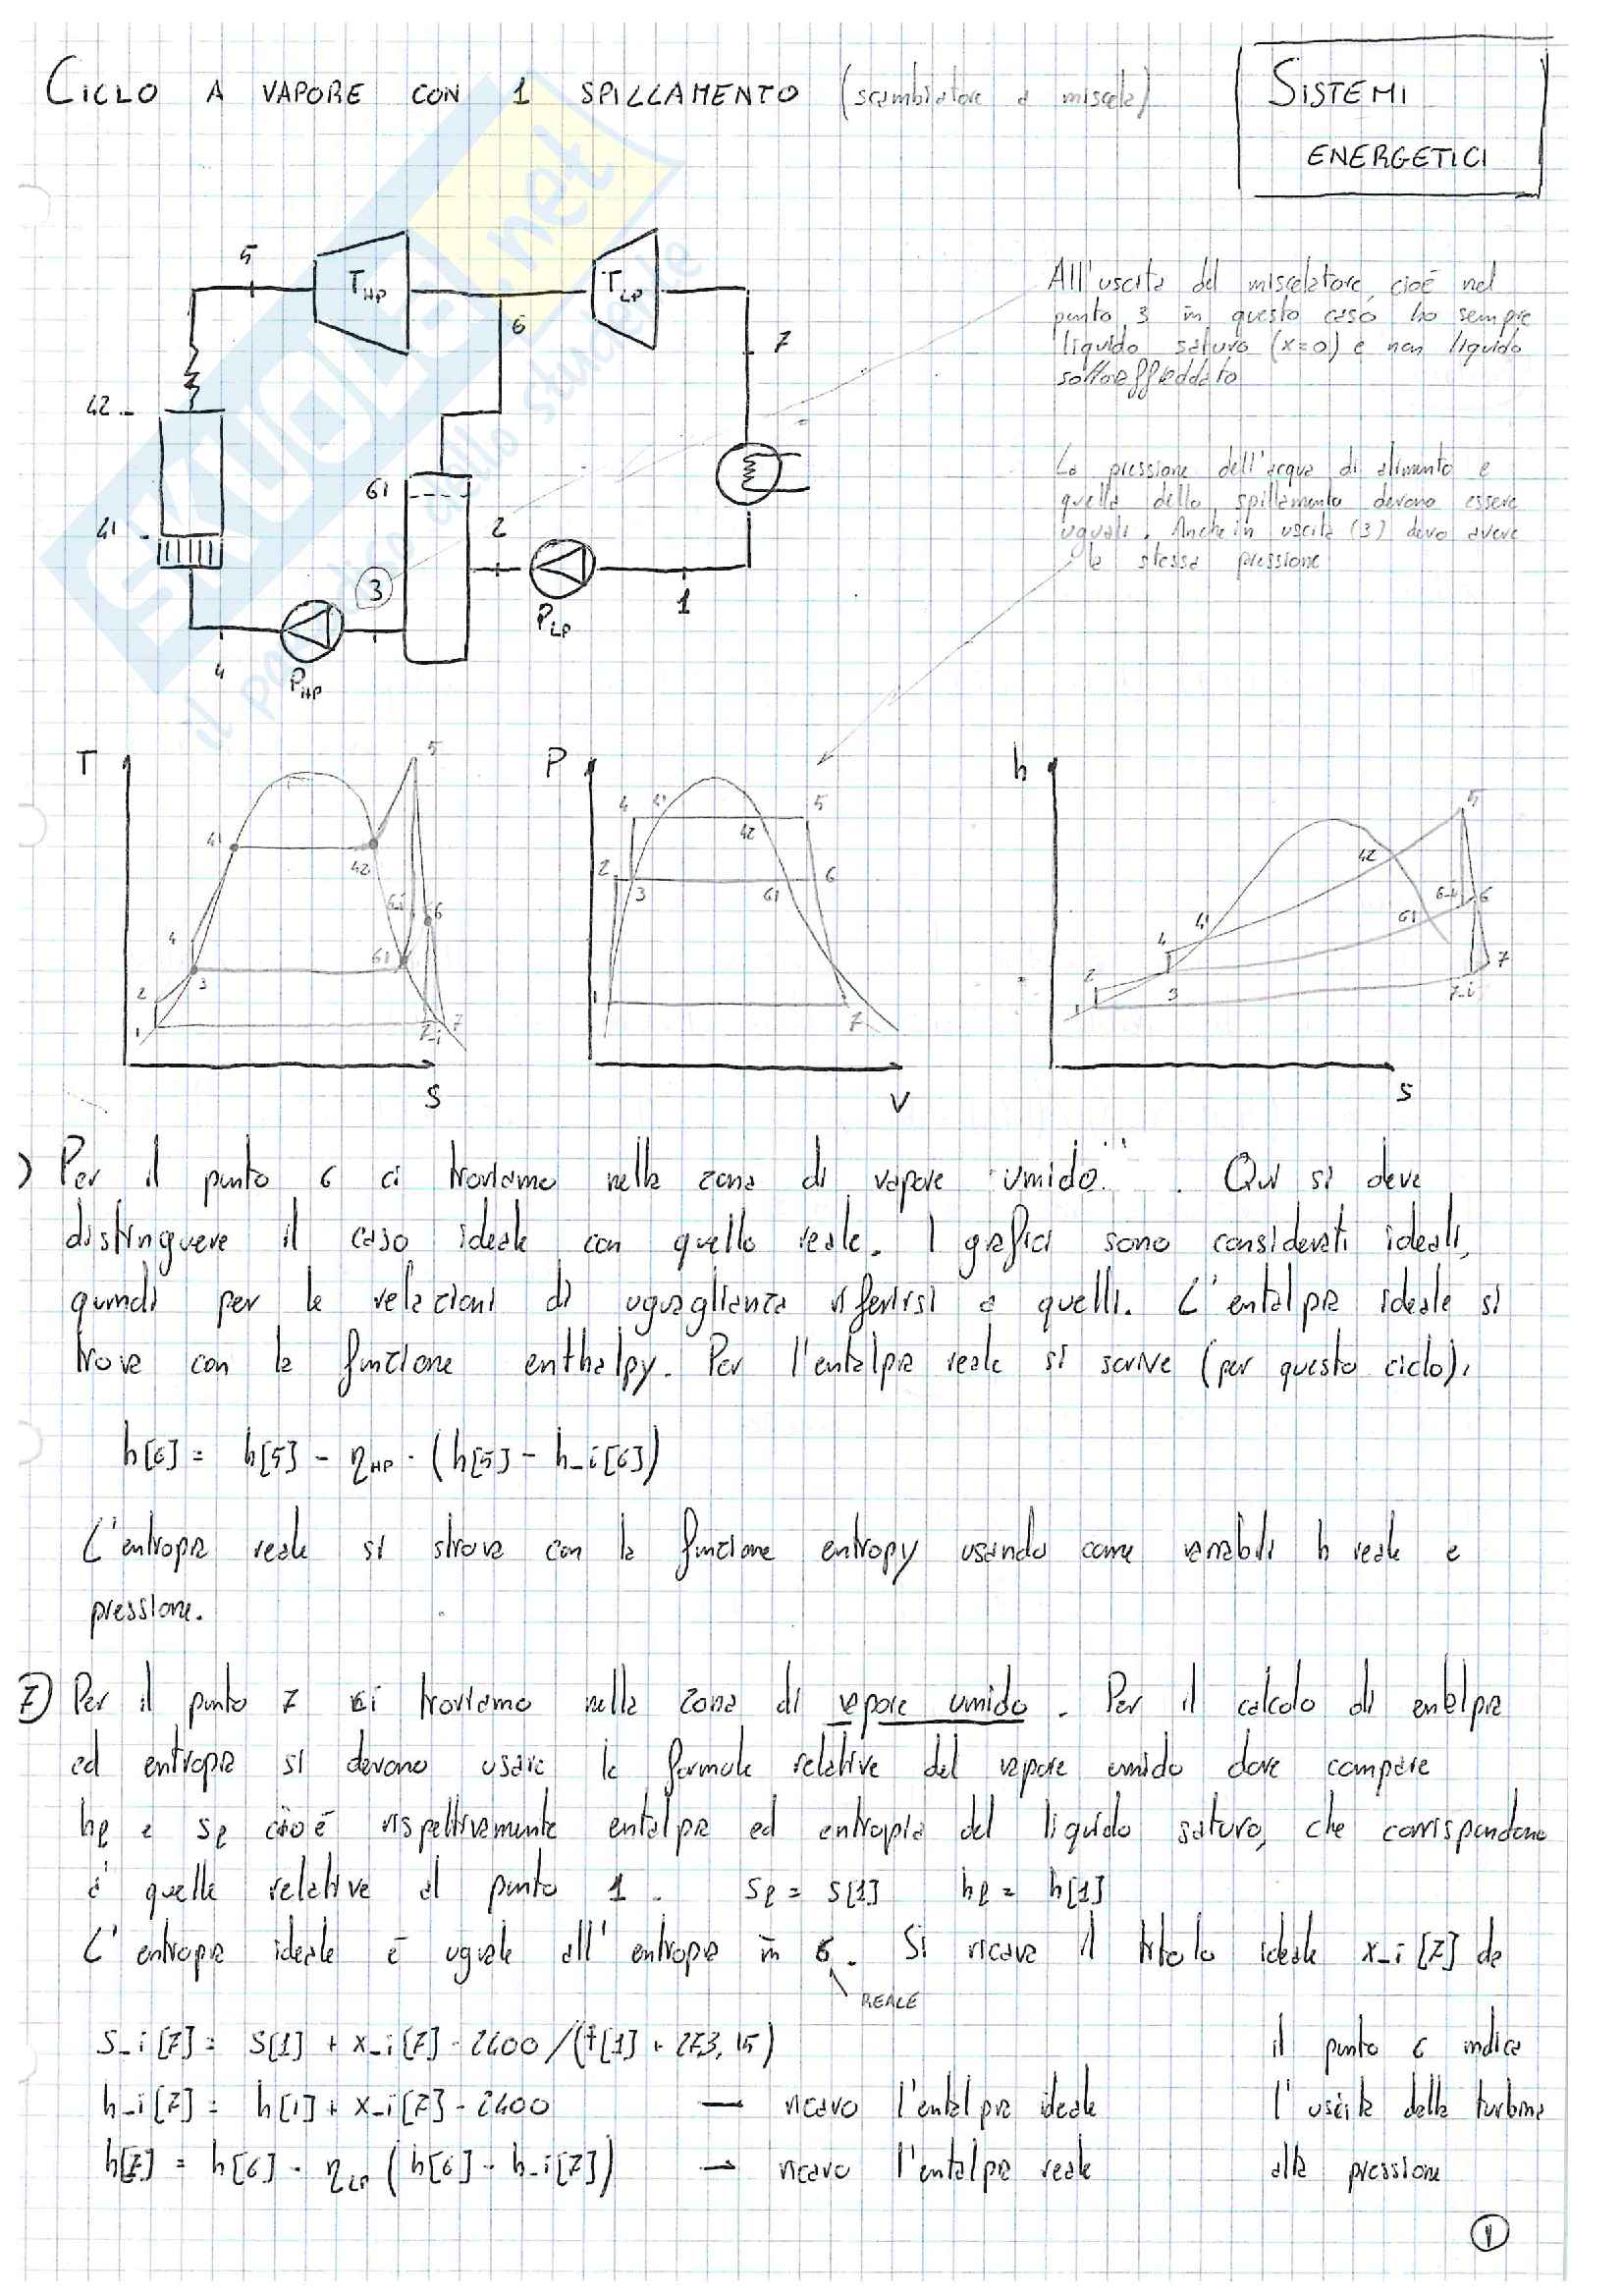 CICLO A VAPORE CON 1 SPILLAMENTO (scambiatore a miscela)
SISTEMI
ENERGETICI
5
T HP
T LP
6
7
42
61
41
2
3
1
P LP
4
P HP
All'uscita del miscelatore, cioè nel
punto 3 in questo caso ho sempre
liquido saturo (x=0) e non liquido
sottoraffreddato
La pressione dell'acqua di alimento e
quella dello spillamento devono essere
uguali. Anche in uscita (3) devo avere
la stessa pressione
T
5
41
42
6-i
6
4
61
2
3
1
7-i
7
S
P
4
41
5
42
2
3
61
6
1
7
V
h
5
42
6-i
6
61
41
4
2
3
1
7-i
7
S
) Per il punto 6 ci troviamo nella zona di vapore umido. Qui si deve
distinguere il caso ideale con quello reale. I grafici sono considerati ideali,
quindi per le relazioni di uguaglianza riferirsi a quelli. L'entalpia ideale si
trova con la funzione enthalpy. Per l'entalpia reale si scrive (per questo ciclo):
h[6] = h[5] - ηHP · (h[5] - h_i[6])
L'entropia reale si strova con la funzione entropy usando come variabili h reale e
pressione.
7) Per il punto 7 ci troviamo nella zona di vapore umido. Per il calcolo di entalpia
ed entropia si devono usare le formule relative del vapore umido dove compare
hl e sl cioè rispettivamente entalpia ed entropia del liquido saturo, che corrispondono
a quelle relative al punto 1. sl = s[1] hl = h[1]
L'entropia ideale è uguale all'entropia in 6. Si ricava il titolo ideale x_i[7] da
REALE
s_i[7] = s[1] + x_i[7] · 2400/(t[1] + 273,15)
il punto 6 indica
h_i[7] = h[1] + x_i[7] · 2400 → ricavo l'entalpia ideale
l'uscita della turbina
h[7] = h[6] - ηLP (h[6] - h_i[7]) → ricavo l'entalpia reale
alla pressione
1